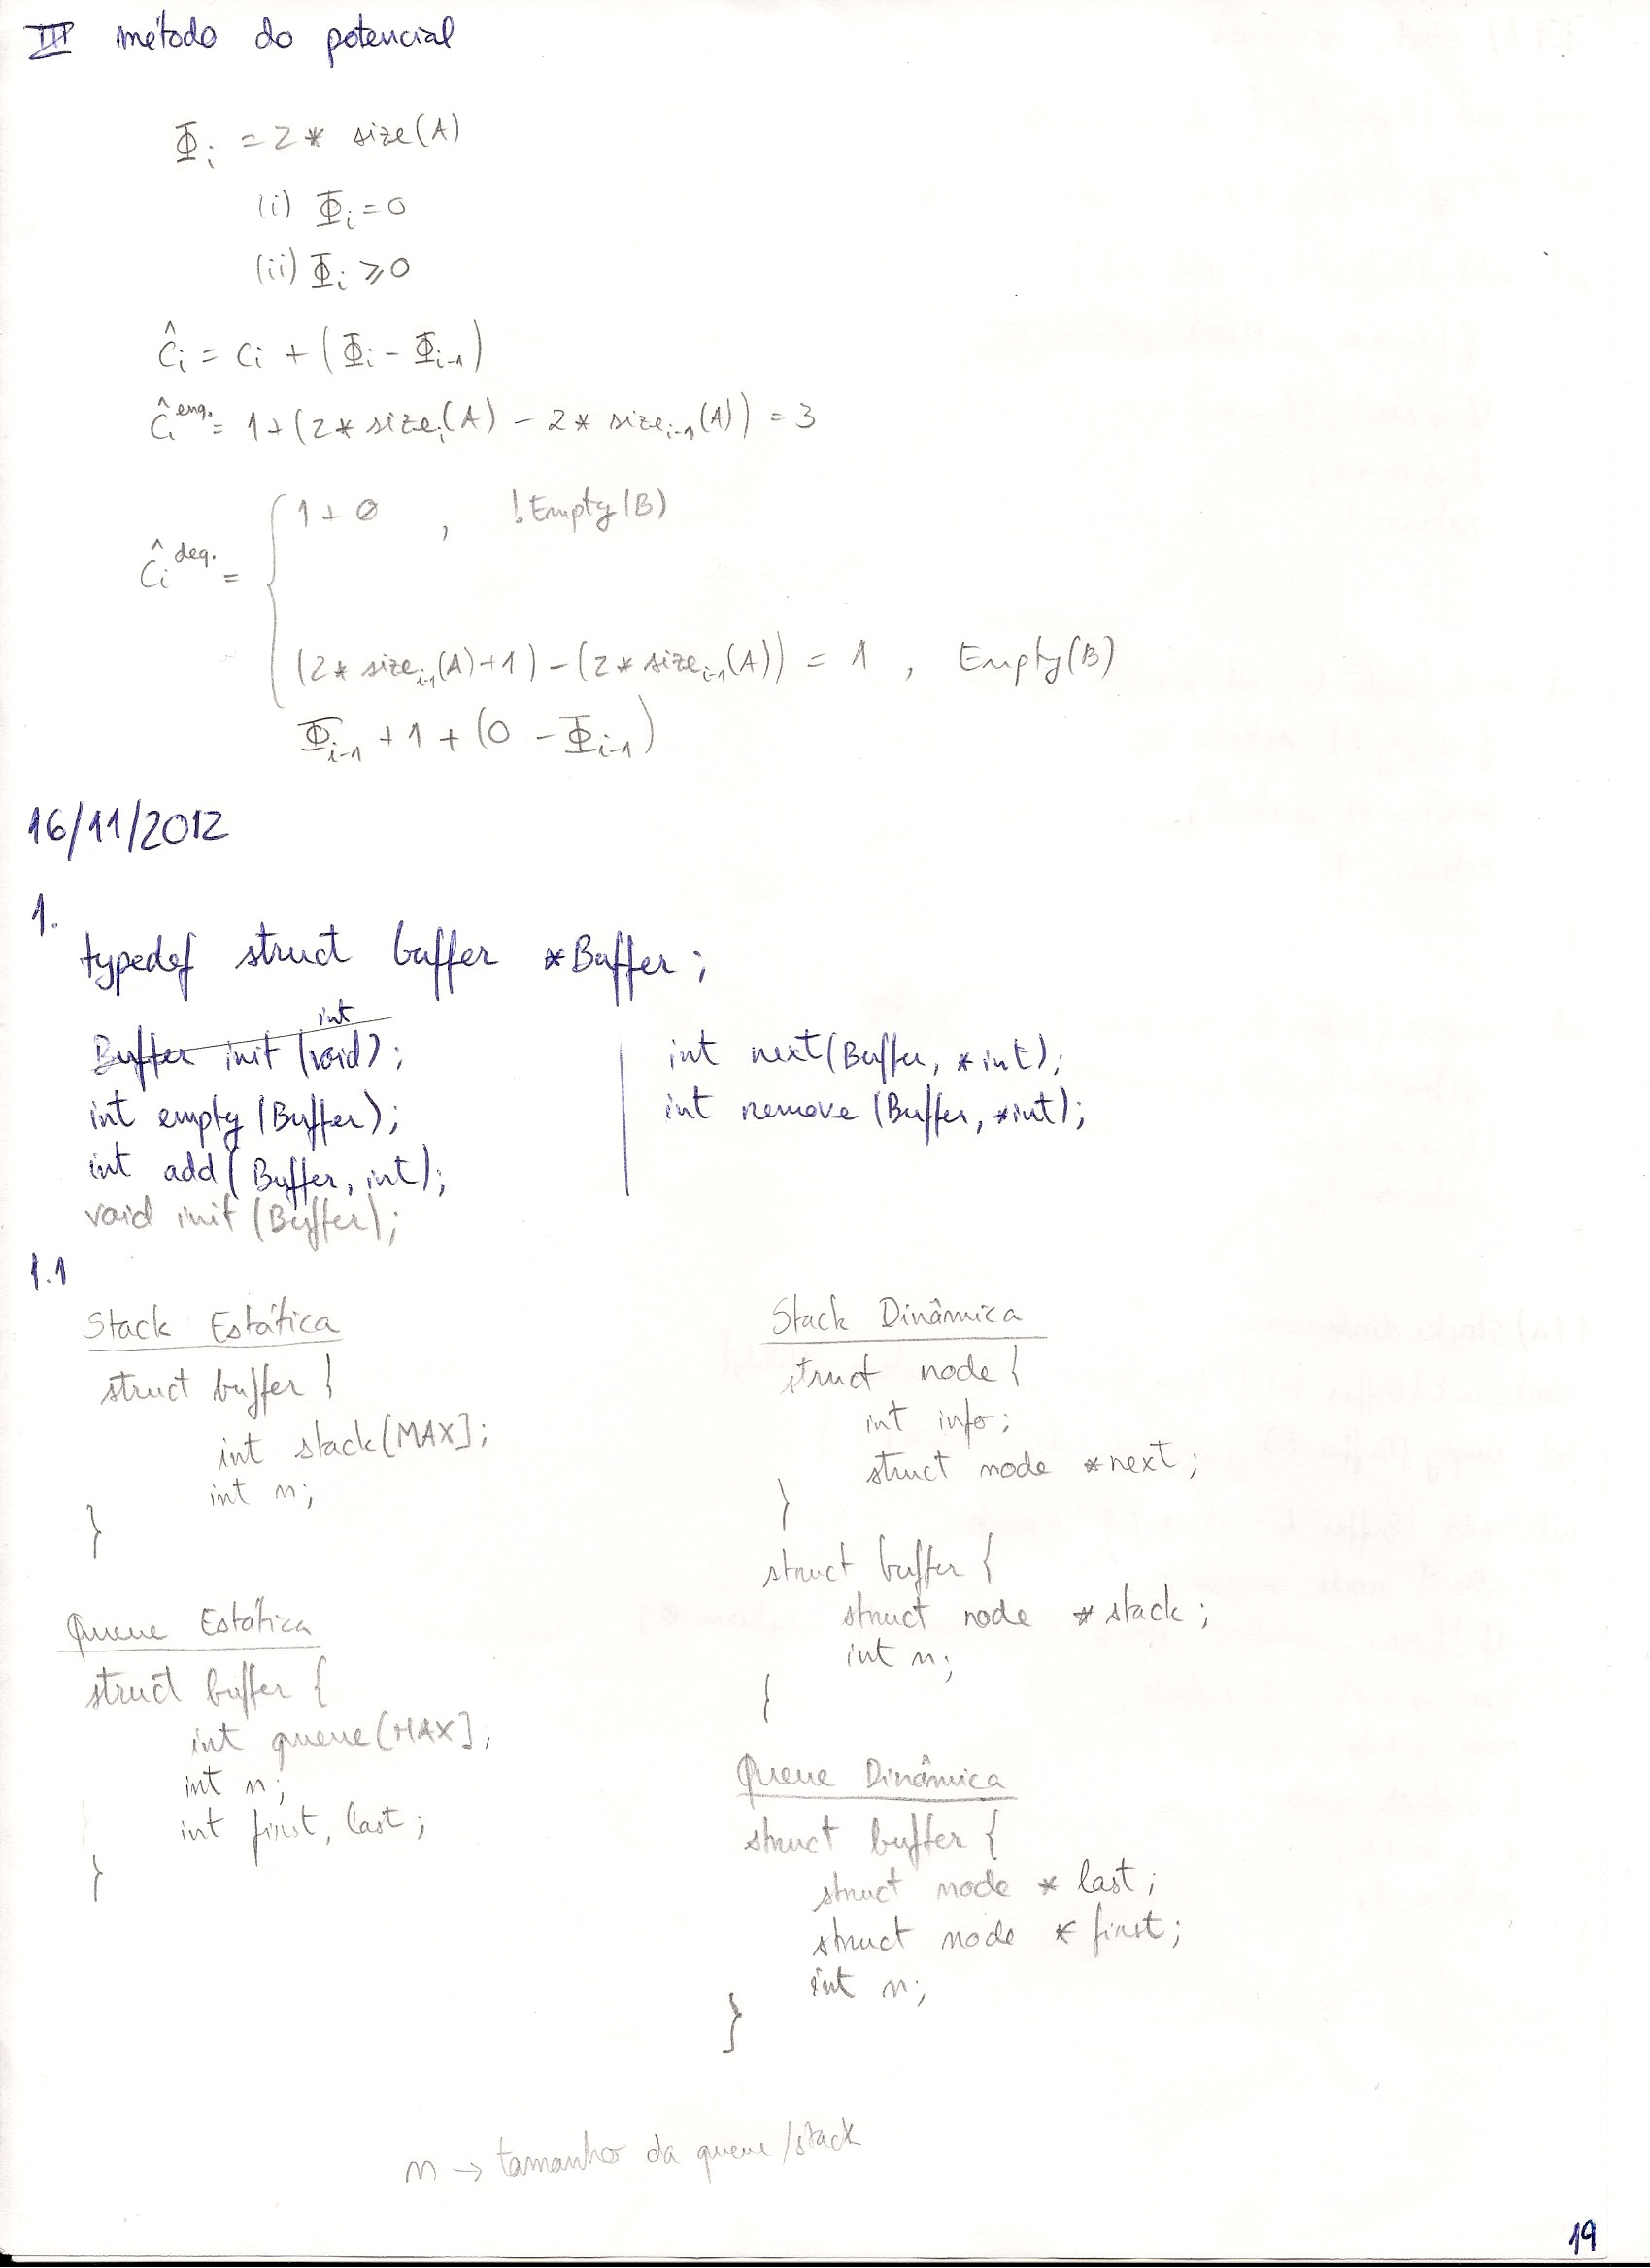 III método do potencial
Φi = 2 * size(A)
(i) Φi = 0
(ii) Φi ⩾ 0
ĉi = ci + (Φi - Φi-1)
ĉi enq. = 1 + (2 * sizei(A) - 2 * sizei-1(A)) = 3
ĉi deq. =
1 + 0 , !Empty(B)
(2 * sizei-1(A) + 1) - (2 * sizei-1(A)) = 1 , Empty(B)
Φi-1 + 1 + (0 - Φi-1)
16/11/2012
1.
typedef struct buffer *Buffer;
int
Buffer init (void);
int empty (Buffer);
int add (Buffer, int);
void init (Buffer);
int next (Buffer, *int);
int remove (Buffer, *int);
1.1
Stack Estática
struct buffer {
int stack[MAX];
int n;
}
Queue Estática
struct buffer {
int queue[MAX];
int n;
int first, last;
}
Stack Dinâmica
struct node {
int info;
struct node *next;
}
struct buffer {
struct node *stack;
int n;
{
Queue Dinâmica
struct buffer {
struct node * last;
struct node * first;
int n;
}
n → tamanho da queue/stack
19